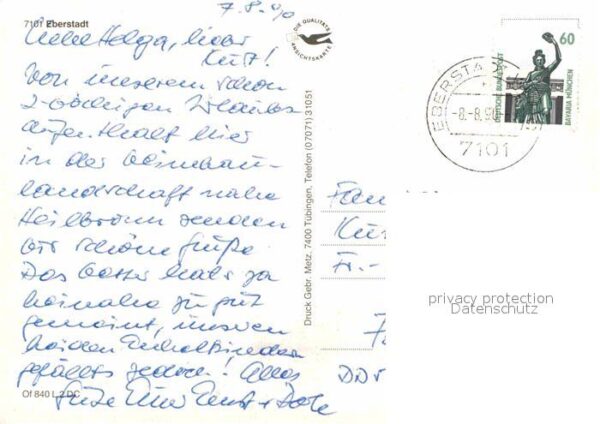 7.8.90
7101 Eberstadt
Liebe Helga, lieber
Kurt!
Von unserem schon
2-wöchigen Urlaubs
aufenthalt hier
in der Weinbau-
landschaft nahe
Heilbronn senden
wir schöne Grüße.
Das Wetter hat's ja
beinahe zu gut
gemeint, unseren
beiden Enkelkindern
gefällts jedoch! Alles
Gute Eure Ernst +
Of 840 L 2 DC
DIE QUALITÄTS
ANSICHTSKARTE
Druck Gebr. Metz, 7400 Tübingen, Telefon (07071) 31051
EBERSTA
-8.-8.90
7101
60
DEUTSCHE BUNDESPOST
BAVARIA MÜNCHEN
Fam
Ku
Fr.-
DDR
privacy protection
Datenschutz